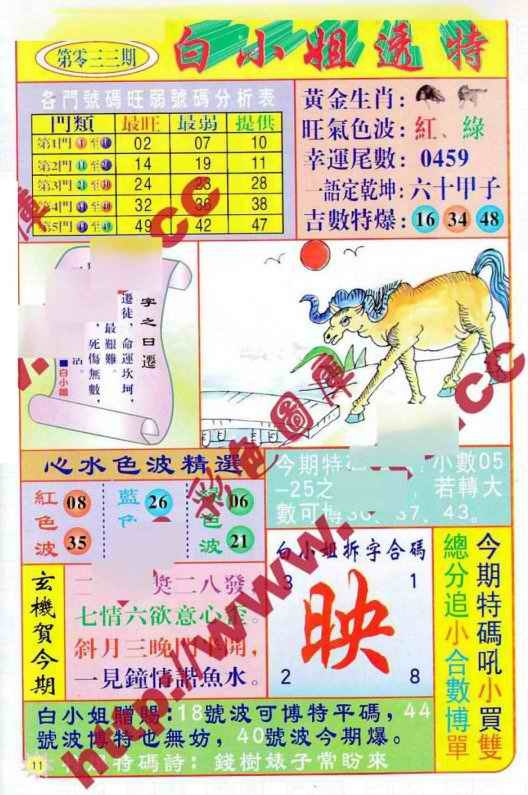 第零三三期
白小姐透特
各門號碼旺弱號碼分析表
門類 最旺 最弱 提供
第1門 02 07 10
第2門 14 19 11
第3門 24 23 28
第4門 32 36 38
第5門 49 42 47
黃金生肖：
旺氣色波：紅、綠
幸運尾數：0459
一語定乾坤：六十甲子
吉數特爆：16 34 48
字之日遷
遷徒，命運坎坷，
最艱難。
，死傷無數，
■白小姐
心水色波精選
紅色波 08 35
藍 26
色波 06 21
今期特 小數05
-25之 ，若轉大
數可博36、37、43。
玄機賀今期
二八發
七情六欲意心
斜月三晚門
一見鐘情諧魚水。
白小姐拆字合碼
3 1
映
2 8
今期特碼吼小買雙
總分追小合數博單
白小姐贈賜：18號波可博特平碼，44
號波博特也無妨，40號波今期爆。
特碼詩：錢樹婊子常盼來
11
彩色圖庫
http://www. .cc